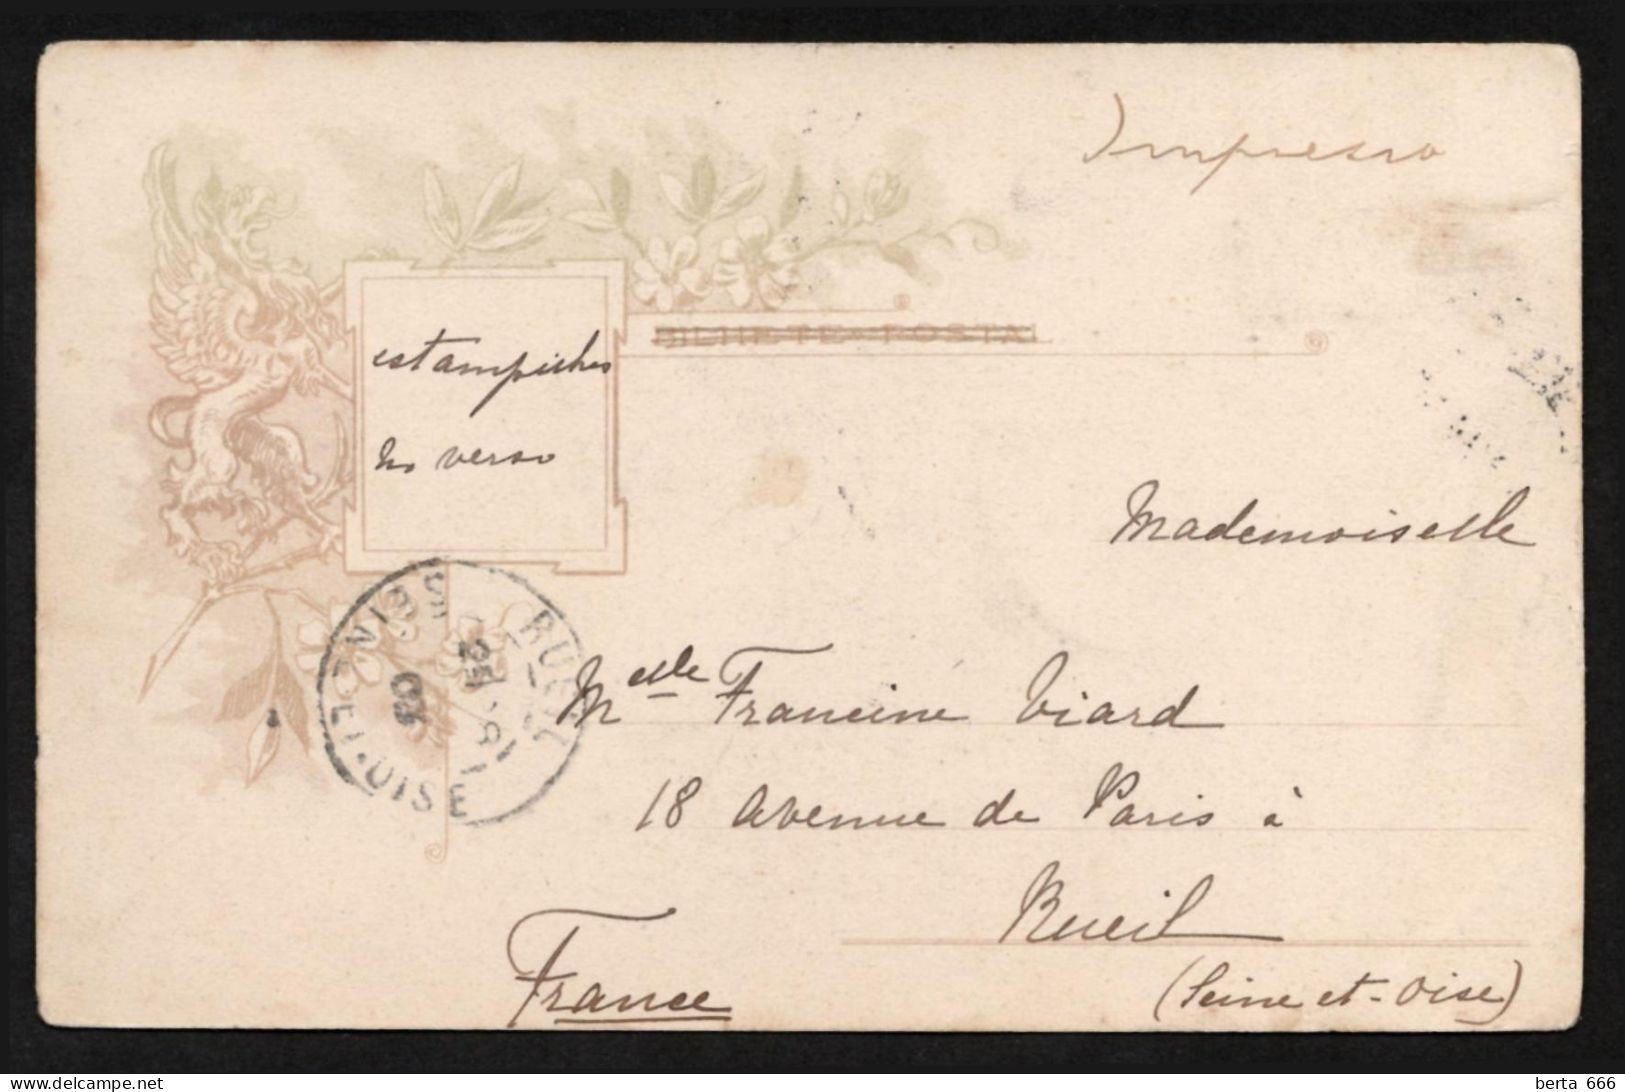 Impresso
BILHETE-POSTAL
estampilhas
no verso
Mademoiselle
RUEIL
SEINE-ET-OISE
25
03
Melle Francine Viard
18 avenue de Paris à
Rueil
(Seine et-Oise)
France
delcampe.net
berta 666